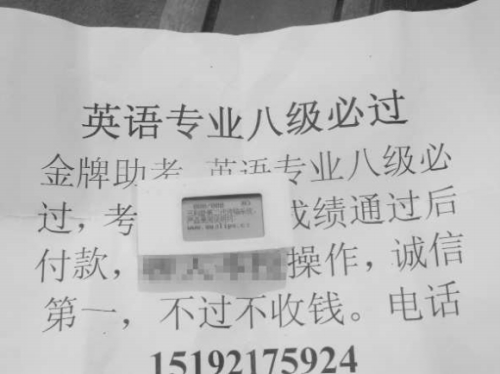 英语专业八级必过
金牌助考 英语专业八级必
过，考 成绩通过后
付款， 操作，诚信
第一，不过不收钱。电话
15192175924